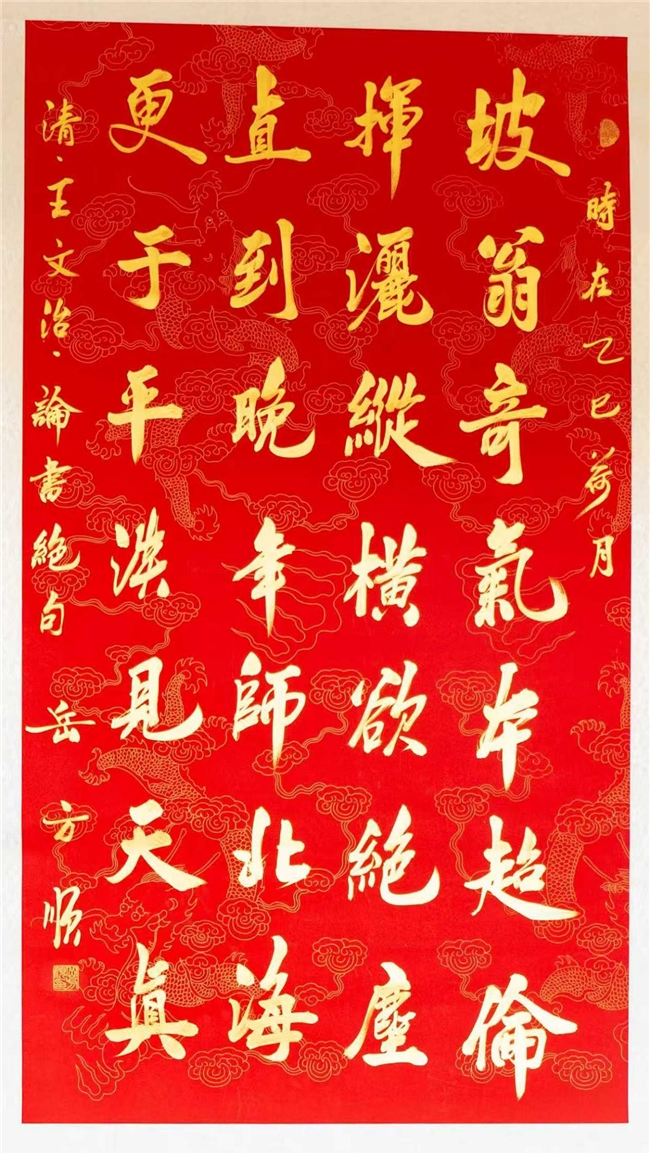 時在乙巳荷月
坡翁奇氣本超倫
揮灑縱橫欲絕塵
直到晚年師北海
更于平淡見天真
清·王文治·論書絕句 岳方順